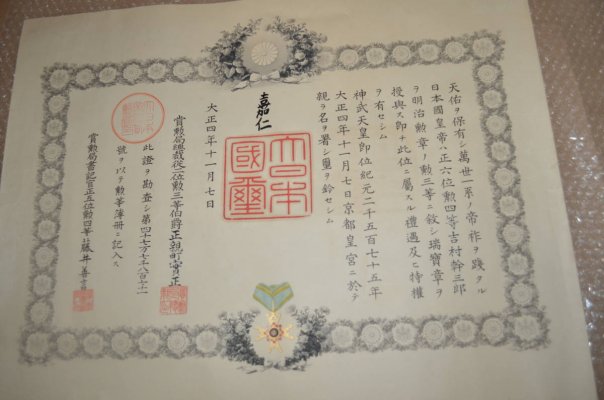 天佑ヲ保有シ萬世一系ノ帝祚ヲ踐タル
日本國皇帝ハ正六位勲四等吉村幹三郎
ヲ明治勲章ノ勲三等ニ敘シ瑞寶章ヲ
授與ス即チ此位ニ屬スル禮遇及ヒ特權
ヲ有セシム
神武天皇即位紀元二千五百七十五年
大正四年十一月七日京都皇宮ニ於テ
親ラ名ヲ署シ璽ヲ鈐セシム
嘉仁
大日本
國璽
大正四年十一月七日
賞勲局總裁從二位勲三等伯爵正親町實正
此證ヲ勘査シ第四十七万七千八百十一
號ヲ以テ勲等簿册ニ記入ス
賞勲局書記官正五位勲四等藤井善言